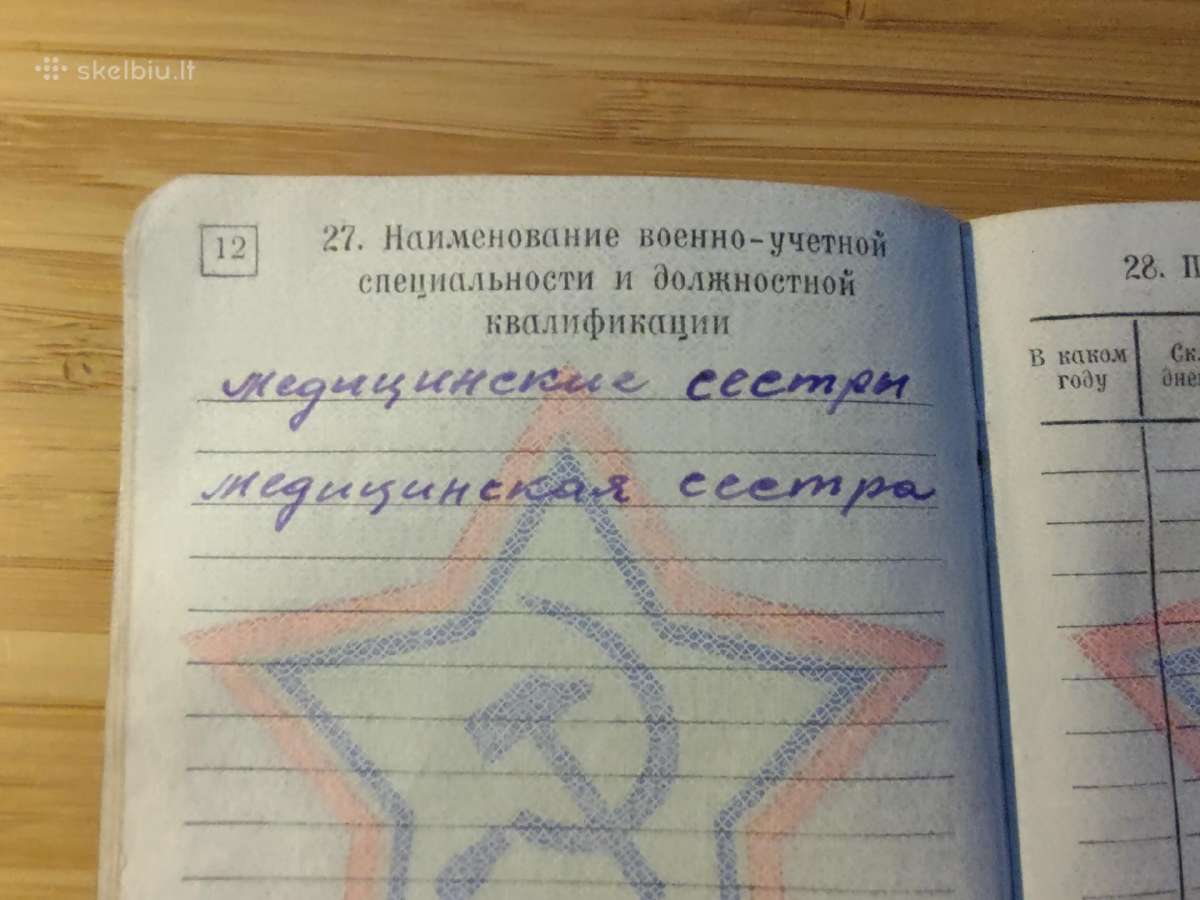 skelbiu.lt
12
27. Наименование военно-учетной
специальности и должностной
квалификации
медицинские сестры
медицинская сестра
28. П
В каком
году
Ск
дне